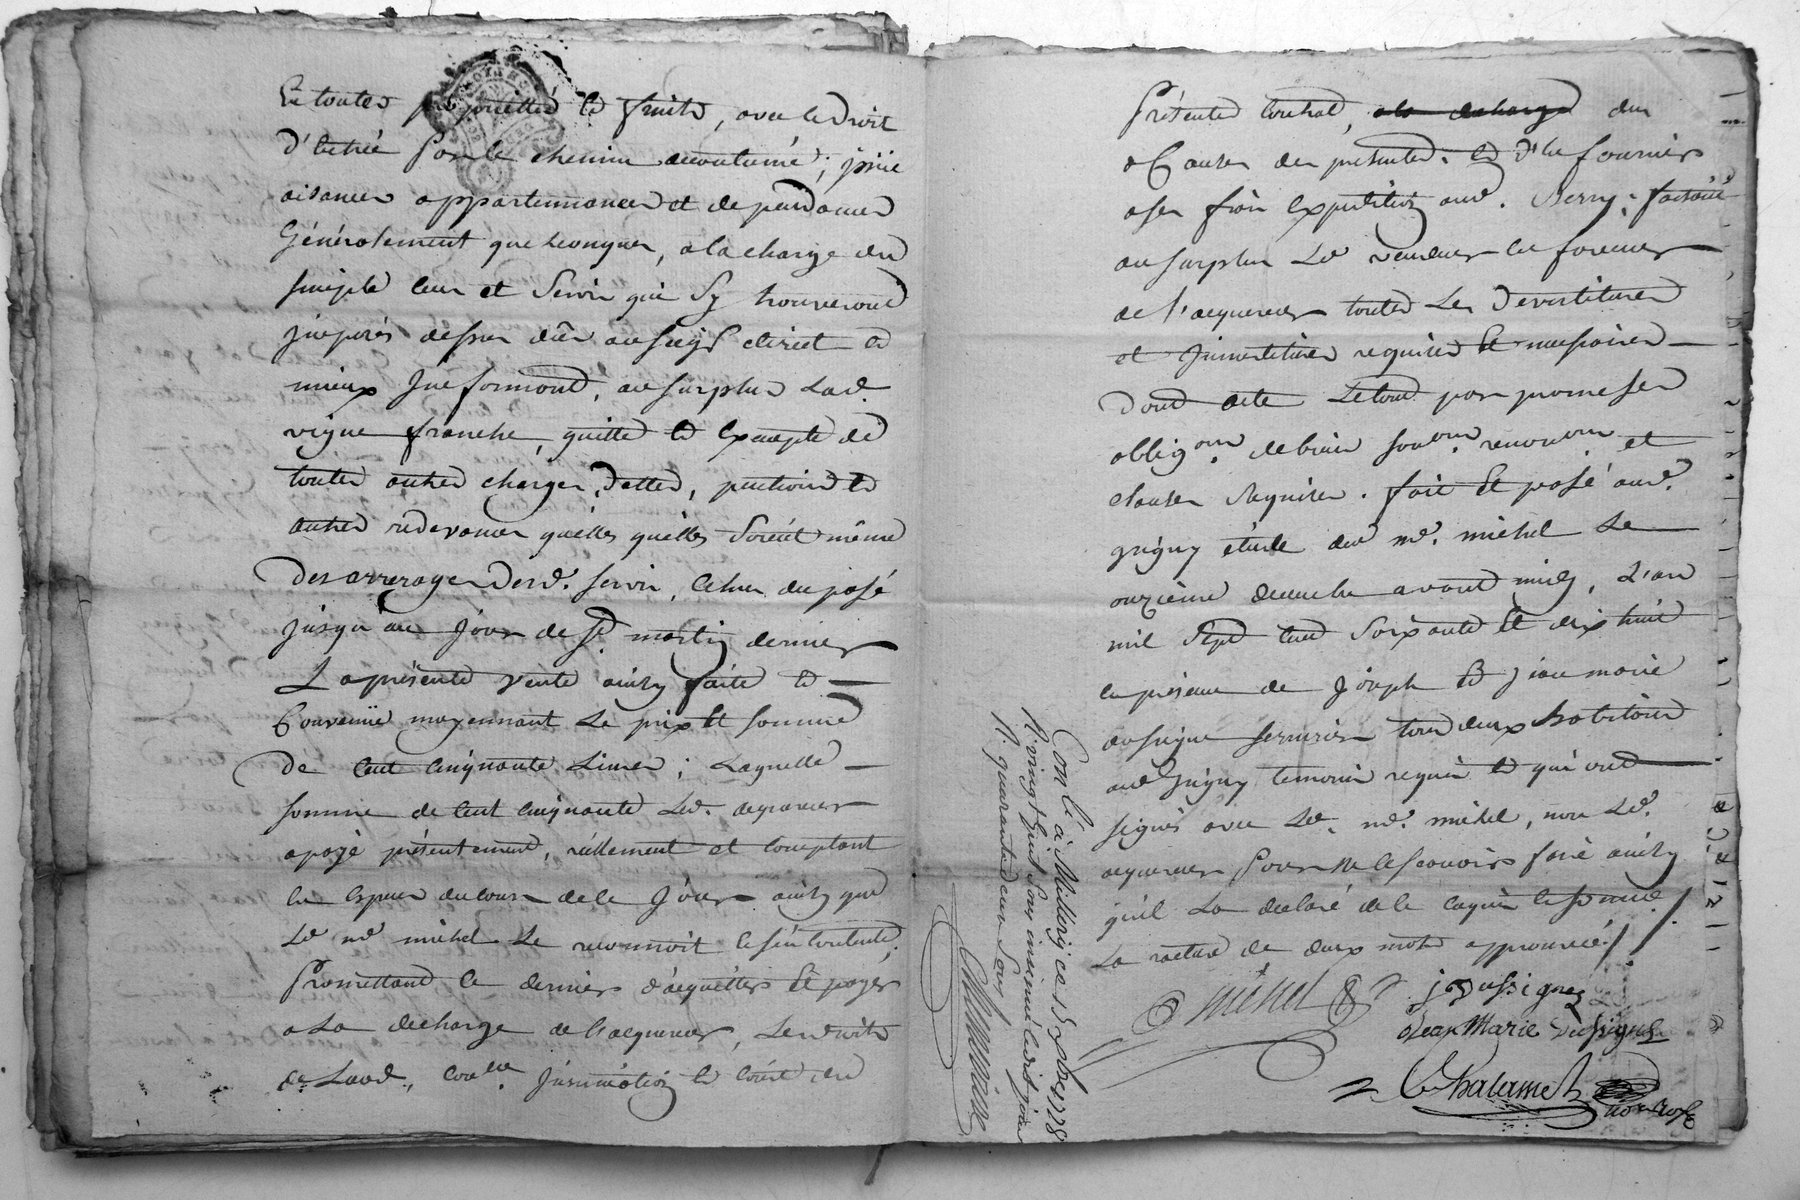 Et toutes ses fruits, avec le Droit
d'Entrée par le chemin accoutumé; prise
aisances appartennances et dependances
Généralement quelconques, a la charge des
simple cens et Servis qui Sy trouveront
jmposés dessus dûs au seigr direct et
mieux Jnformond, au surplus lad.
vigne franche, quitte et Exempte de
toutes autres charges, dettes, pentions et
autres rédevances qu'elles qu'elles Soient même
Des arrerages Desd. servis, du passé
jusqu'au jour de St. martin dernier
La présente vente ainsy faite et
Convenüe moyennant Le prix Et somme
De Cent Cinquante Livres; Laquelle
somme de Cent Cinquante Led. acquereur
a payé présentement, réellement et comptant
En Especes du cours de ce Jour ainsy que
Led. me. michel Le reconnoit content,
Promettant ce dernier d'acquitter Et payer
a La decharge de L'acquereur, Les droits
de Laod, Jnsinüation et Coust des
Présentes a la decharge des
a Cause des presentes. et d'En fournir
a ses frais Expedition aud. Berry;
au surplus Led vendeur en faveur
de l'acquereur toutes Les Devestitures
et Jnvestitures requises Et necessaires
Dont acte Le tout par promesses
obligons. de biens soumons. renonons. et
clauses Requises. fait Et passé aud.
grigny étude dud me. michel Le
onzieme decembre avant midy, L'an
mil Sept Cent Soixante Et dix huit
En présence de Joseph Et Jean marie
dussigne serrurier tous deux habitans
aud Grigny temoins requis Et qui ont
signés avec Led. me. michel, non Led.
acquereur Pour ne le scavoir faire ainsy
qu'il La declaré de ce Enquis Et sommé
La rature de deux mots approuvée.
michel
j Dussignez
Jean Marie Dussigne
Chalamel
nore Royl
Con.lé à Millery ce 15 xbre 1778
R. vingt huit Sous
R. quarante deux Sous